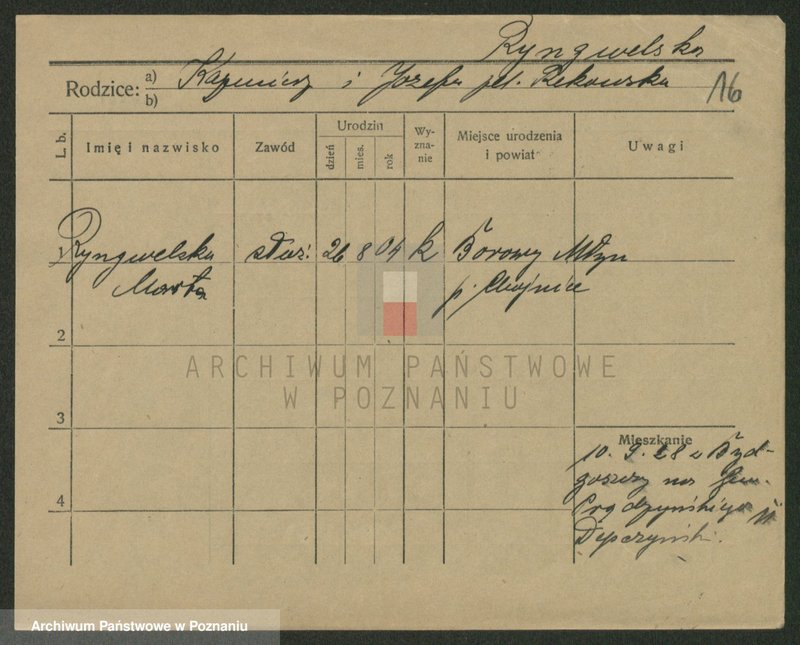 Ryngwelska
Rodzice: a) b) Kazmierz i Jozefa pt. Rekowska
16
L. b.
Imię i nazwisko
Zawód
Urodzin
dzień
mies.
rok
Wy-
zna-
nie
Miejsce urodzenia
i powiat
Uwagi
1 Ryngwelska służ: 26 8 04 k Borowy Młyn
Marta p. Chojnice
2
ARCHIWUM PAŃSTWOWE
W POZNANIU
3
Mieszkanie
10. 9. 28 z Byd-
goszczy na Gen.
4
Prądzyńskiego 11
Depczyński.
Archiwum Państwowe w Poznaniu